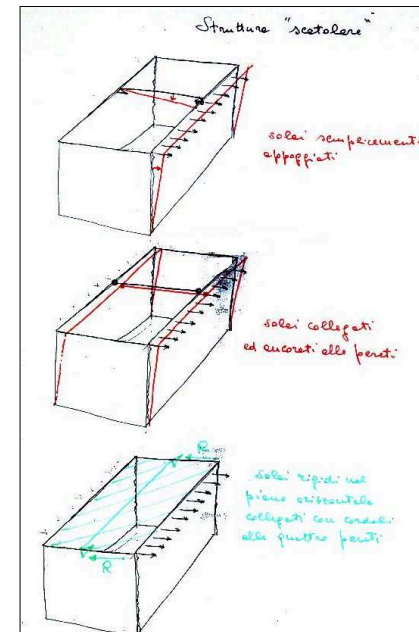 Struttura "scatolare"
solai semplicemente
appoggiati
solai collegati
ed ancorati alle pareti
R
solai rigidi nel
piano orizzontale
collegati con cordoli
alle quattro pareti
R